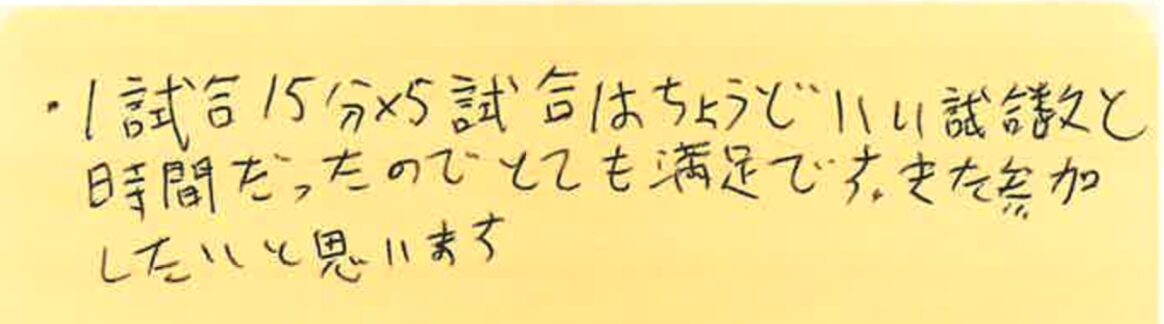 ・1試合15分×5試合はちょうどいい試合数と
時間だったのでとても満足です。また参加
したいと思います